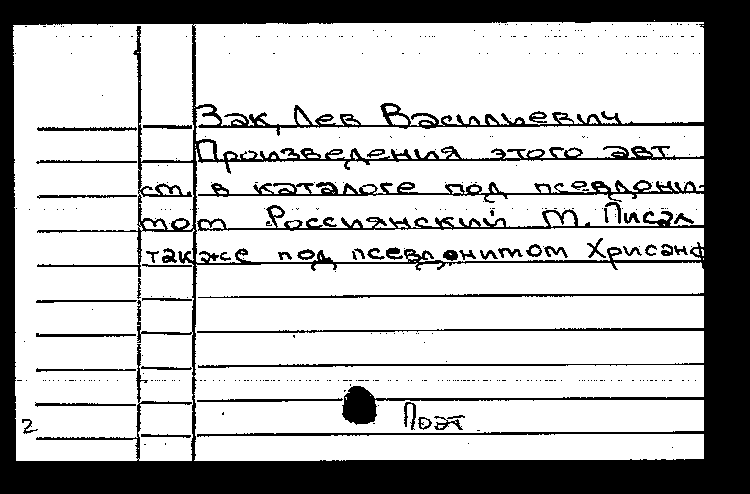 Зак, Лев Васильевич.
Произведения этого авт.
см. в каталоге под псевдони-
мом Россиянский М. Писал
также под псевдонимом Хрисанф
2
Поэт